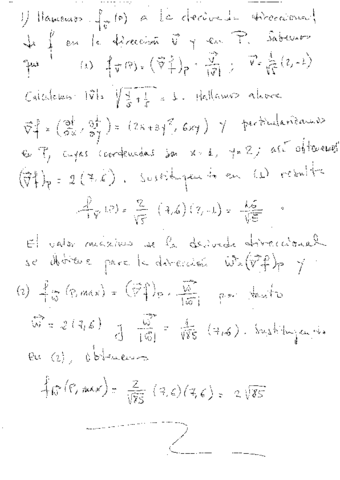 1) Llamamos f_v⃗(P) a la derivada direccional
de f en la dirección v⃗ y en P. Sabemos
que (1) f_v⃗(P) = (∇⃗f)_P · v⃗/|v⃗| ; v⃗ = 1/√5 (2,-1)
Calculemos |v⃗| = √(4/5 + 1/5) = 1. Hallamos ahora
∇⃗f = (∂f/∂x, ∂f/∂y) = (2x+3y², 6xy) y particularizamos
en P, cuyas coordenadas son x=1, y=2; así obtenemos
(∇⃗f)_P = 2(7,6). Sustituyendo en (1) resulta
f_v⃗(P) = 2/√5 (7,6)(2,-1) = 16/√5
El valor máximo de la derivada direccional
se obtiene para la dirección w⃗ = (∇⃗f)_P y
(2) f_w⃗(P, max) = (∇⃗f)_P · w⃗/|w⃗| por tanto
w⃗ = 2(7,6) y w⃗/|w⃗| = 1/√85 (7,6). Sustituyendo
en (2), obtenemos
f_w⃗(P, max) = 2/√85 (7,6)(7,6) = 2√85